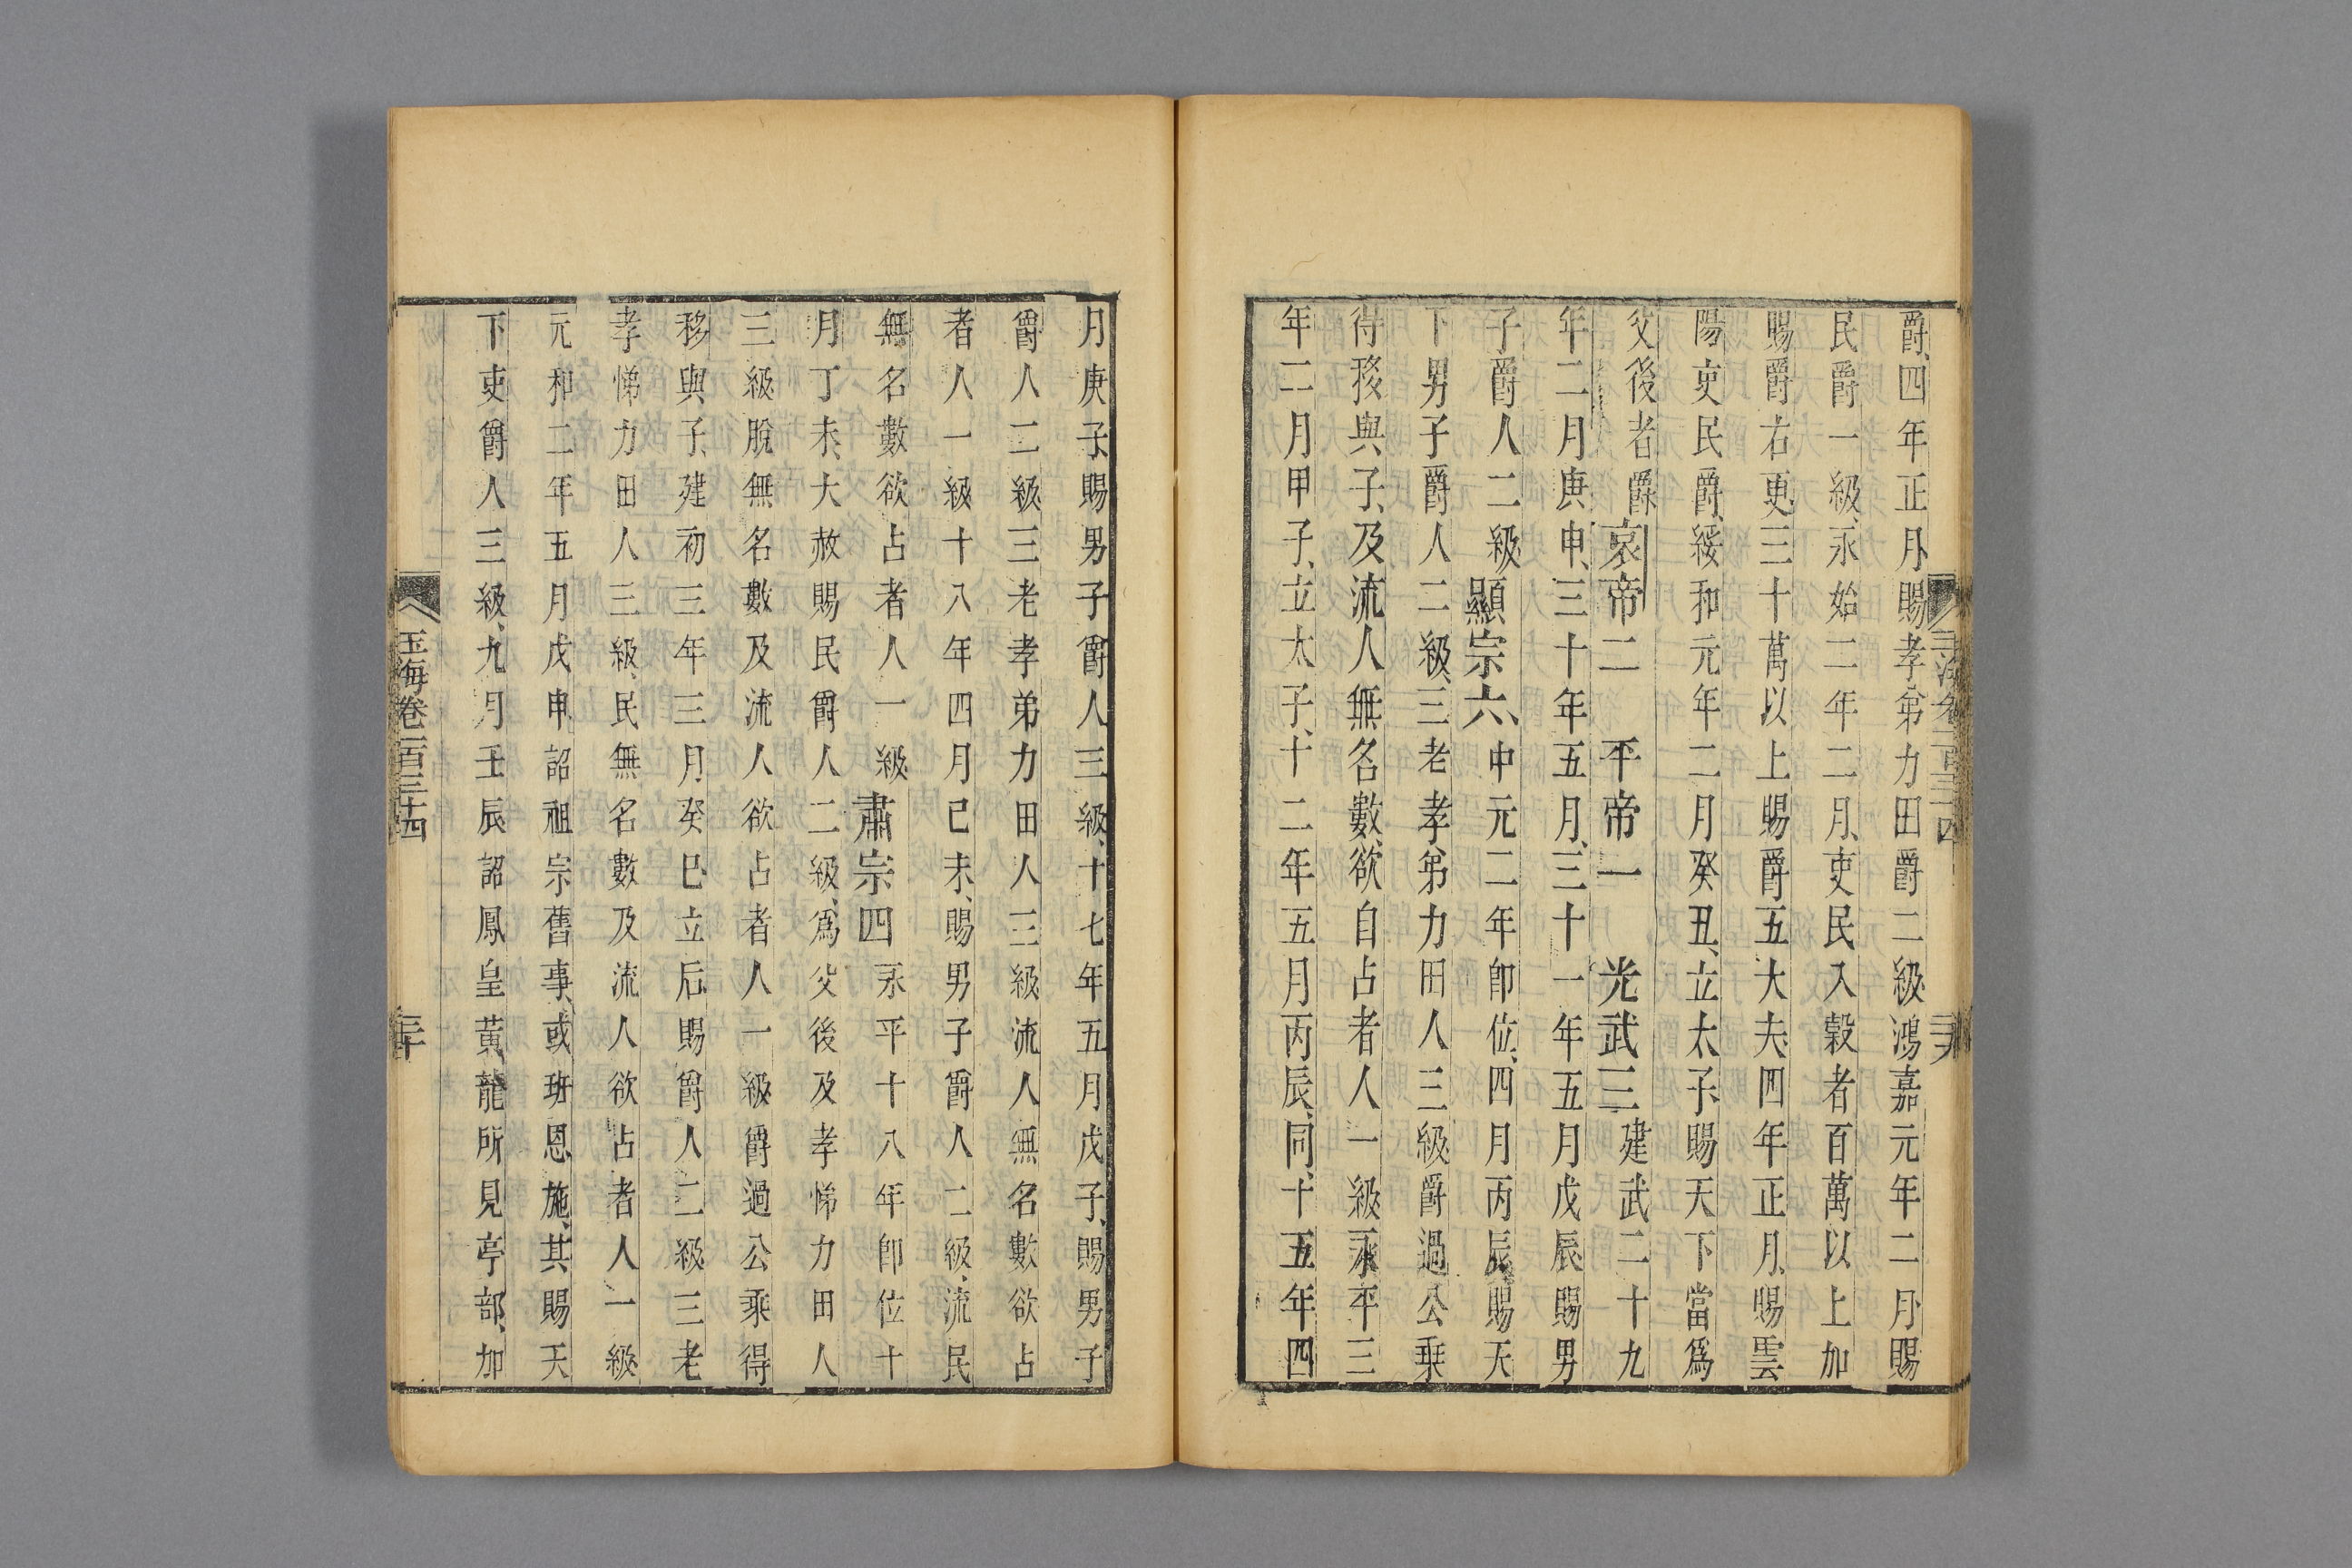 爵、四年正月、賜孝弟力田爵二級鴻嘉元年二月、賜
民爵一級、永始二年二月、吏民入穀者百萬以上加
賜爵右更三十萬以上賜爵五大夫、四年正月、賜雲
陽吏民爵、綏和元年二月癸丑、立太子、賜天下當爲
父後者爵 哀帝二 平帝一 光武三 建武二十九
年二月庚申、三十年五月、三十一年五月戊辰賜男
子爵人二級 顯宗六、中元二年卽位、四月丙辰賜天
下男子爵人二級、三老孝弟力田人三級爵過公乗
得移與子、及流人無名數、欲自占者人一級永平三
年二月甲子、立太子、十二年五月丙辰、同、十五年四
月庚子、賜男子爵人三級、十七年五月戊子、賜男子
爵人二級三老孝弟力田人三級流人無名數欲占
者人一級十八年四月己未、賜男子爵人二級、流民
無名數欲占者人一級 肅宗四 永平十八年卽位十
月丁未、大赦賜民爵人二級、爲父後及孝悌力田人
三級脫無名數及流人欲占者人一級爵過公乘得
移與子、建初三年三月癸巳立后、賜爵人二級三老
孝悌力田人三級、民無名數及流人欲占者人一級
元和二年五月戊申詔祖宗舊事、或班恩施、其賜天
下吏爵人三級、九月壬辰詔鳳皇黃龍所見亭部、加
玉海卷一百三十四
三十